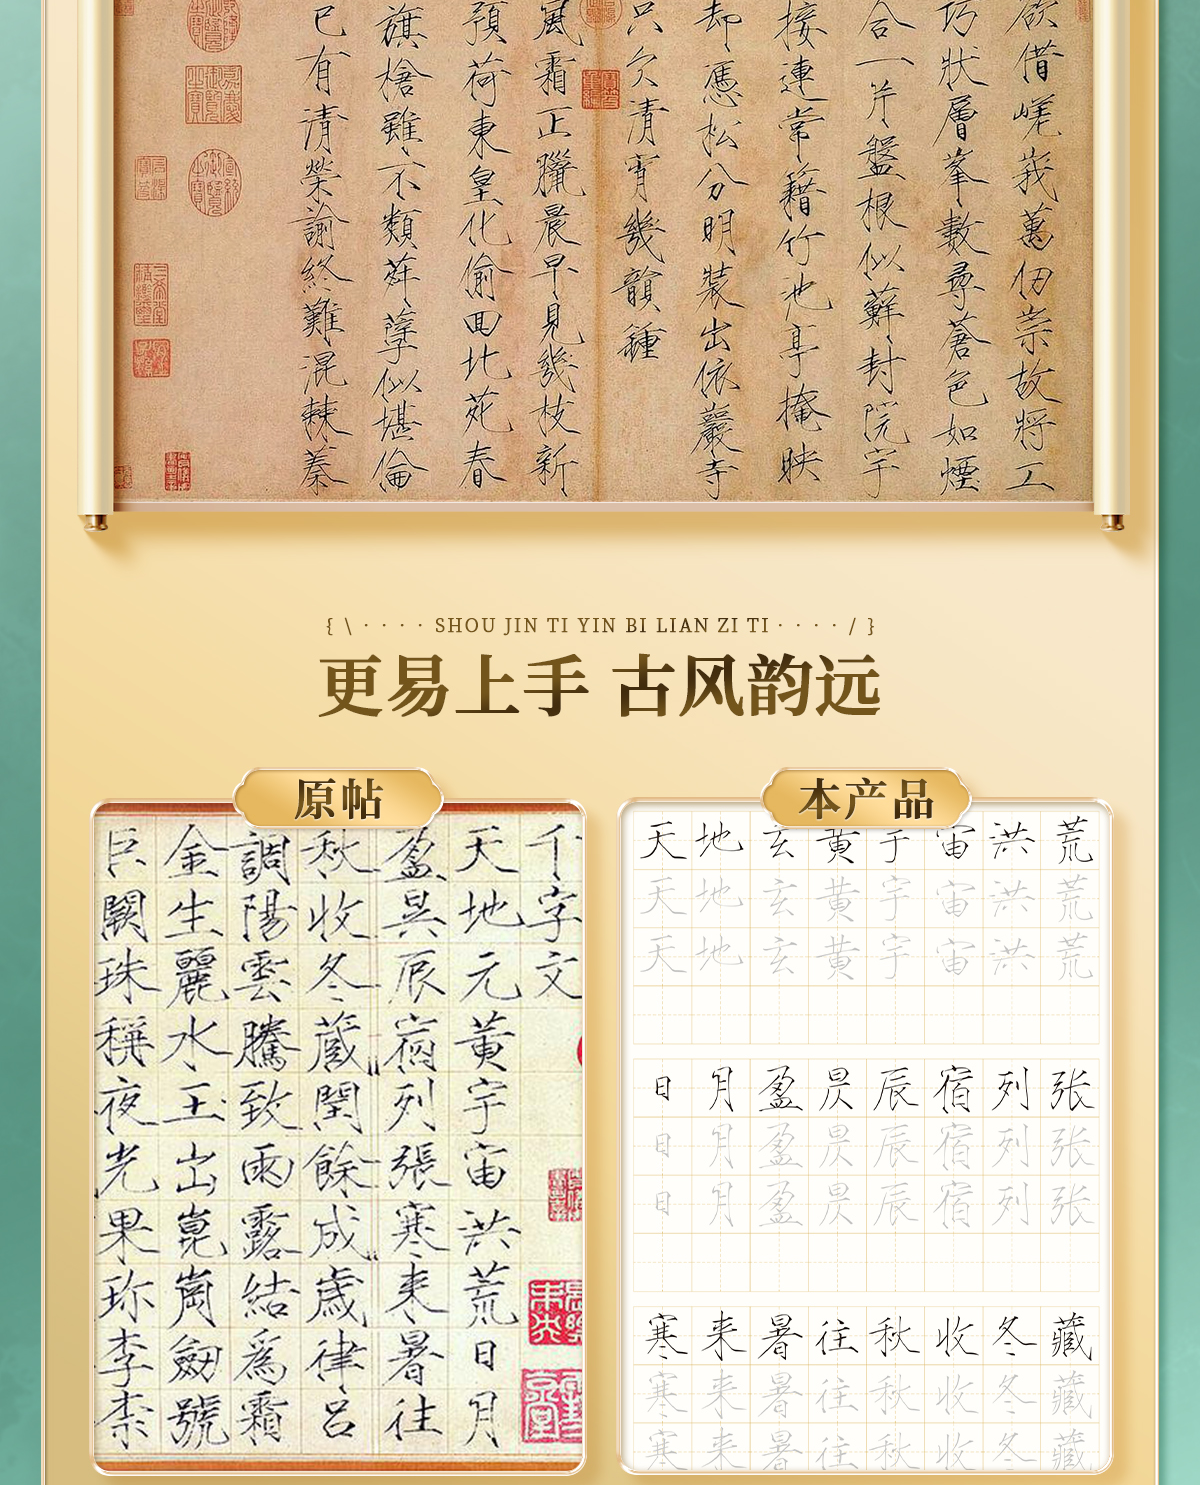 欲借嵯峨萬仞崇故將工
巧狀層峯數尋蒼色如煙
合一片盤根似蘚封院宇
接連常籍竹池亭掩映
却憑松分明裝出依巖寺
只欠清宵幾韻鍾
風霜正臘晨早見幾枝新
預荷東皇化偷回北苑春
旗槍雖不類荈孽似堪倫
已有清榮諭終難混棘蓁
{ \ · · · · SHOU JIN TI YIN BI LIAN ZI TI · · · · / }
更易上手 古风韵远
原帖
千字文
天地元黃宇宙洪荒日月
盈昃辰宿列張寒來暑往
秋收冬蔵閏餘成歲律呂
調陽雲騰致雨露結爲霜
金生麗水玉出崑崗劔號
巨闕珠稱夜光果珍李柰
本产品
天地玄黄宇宙洪荒
天地玄黄宇宙洪荒
天地玄黄宇宙洪荒
日月盈昃辰宿列张
日月盈昃辰宿列张
日月盈昃辰宿列张
寒来暑往秋收冬藏
寒来暑往秋收冬藏
寒来暑往秋收冬藏